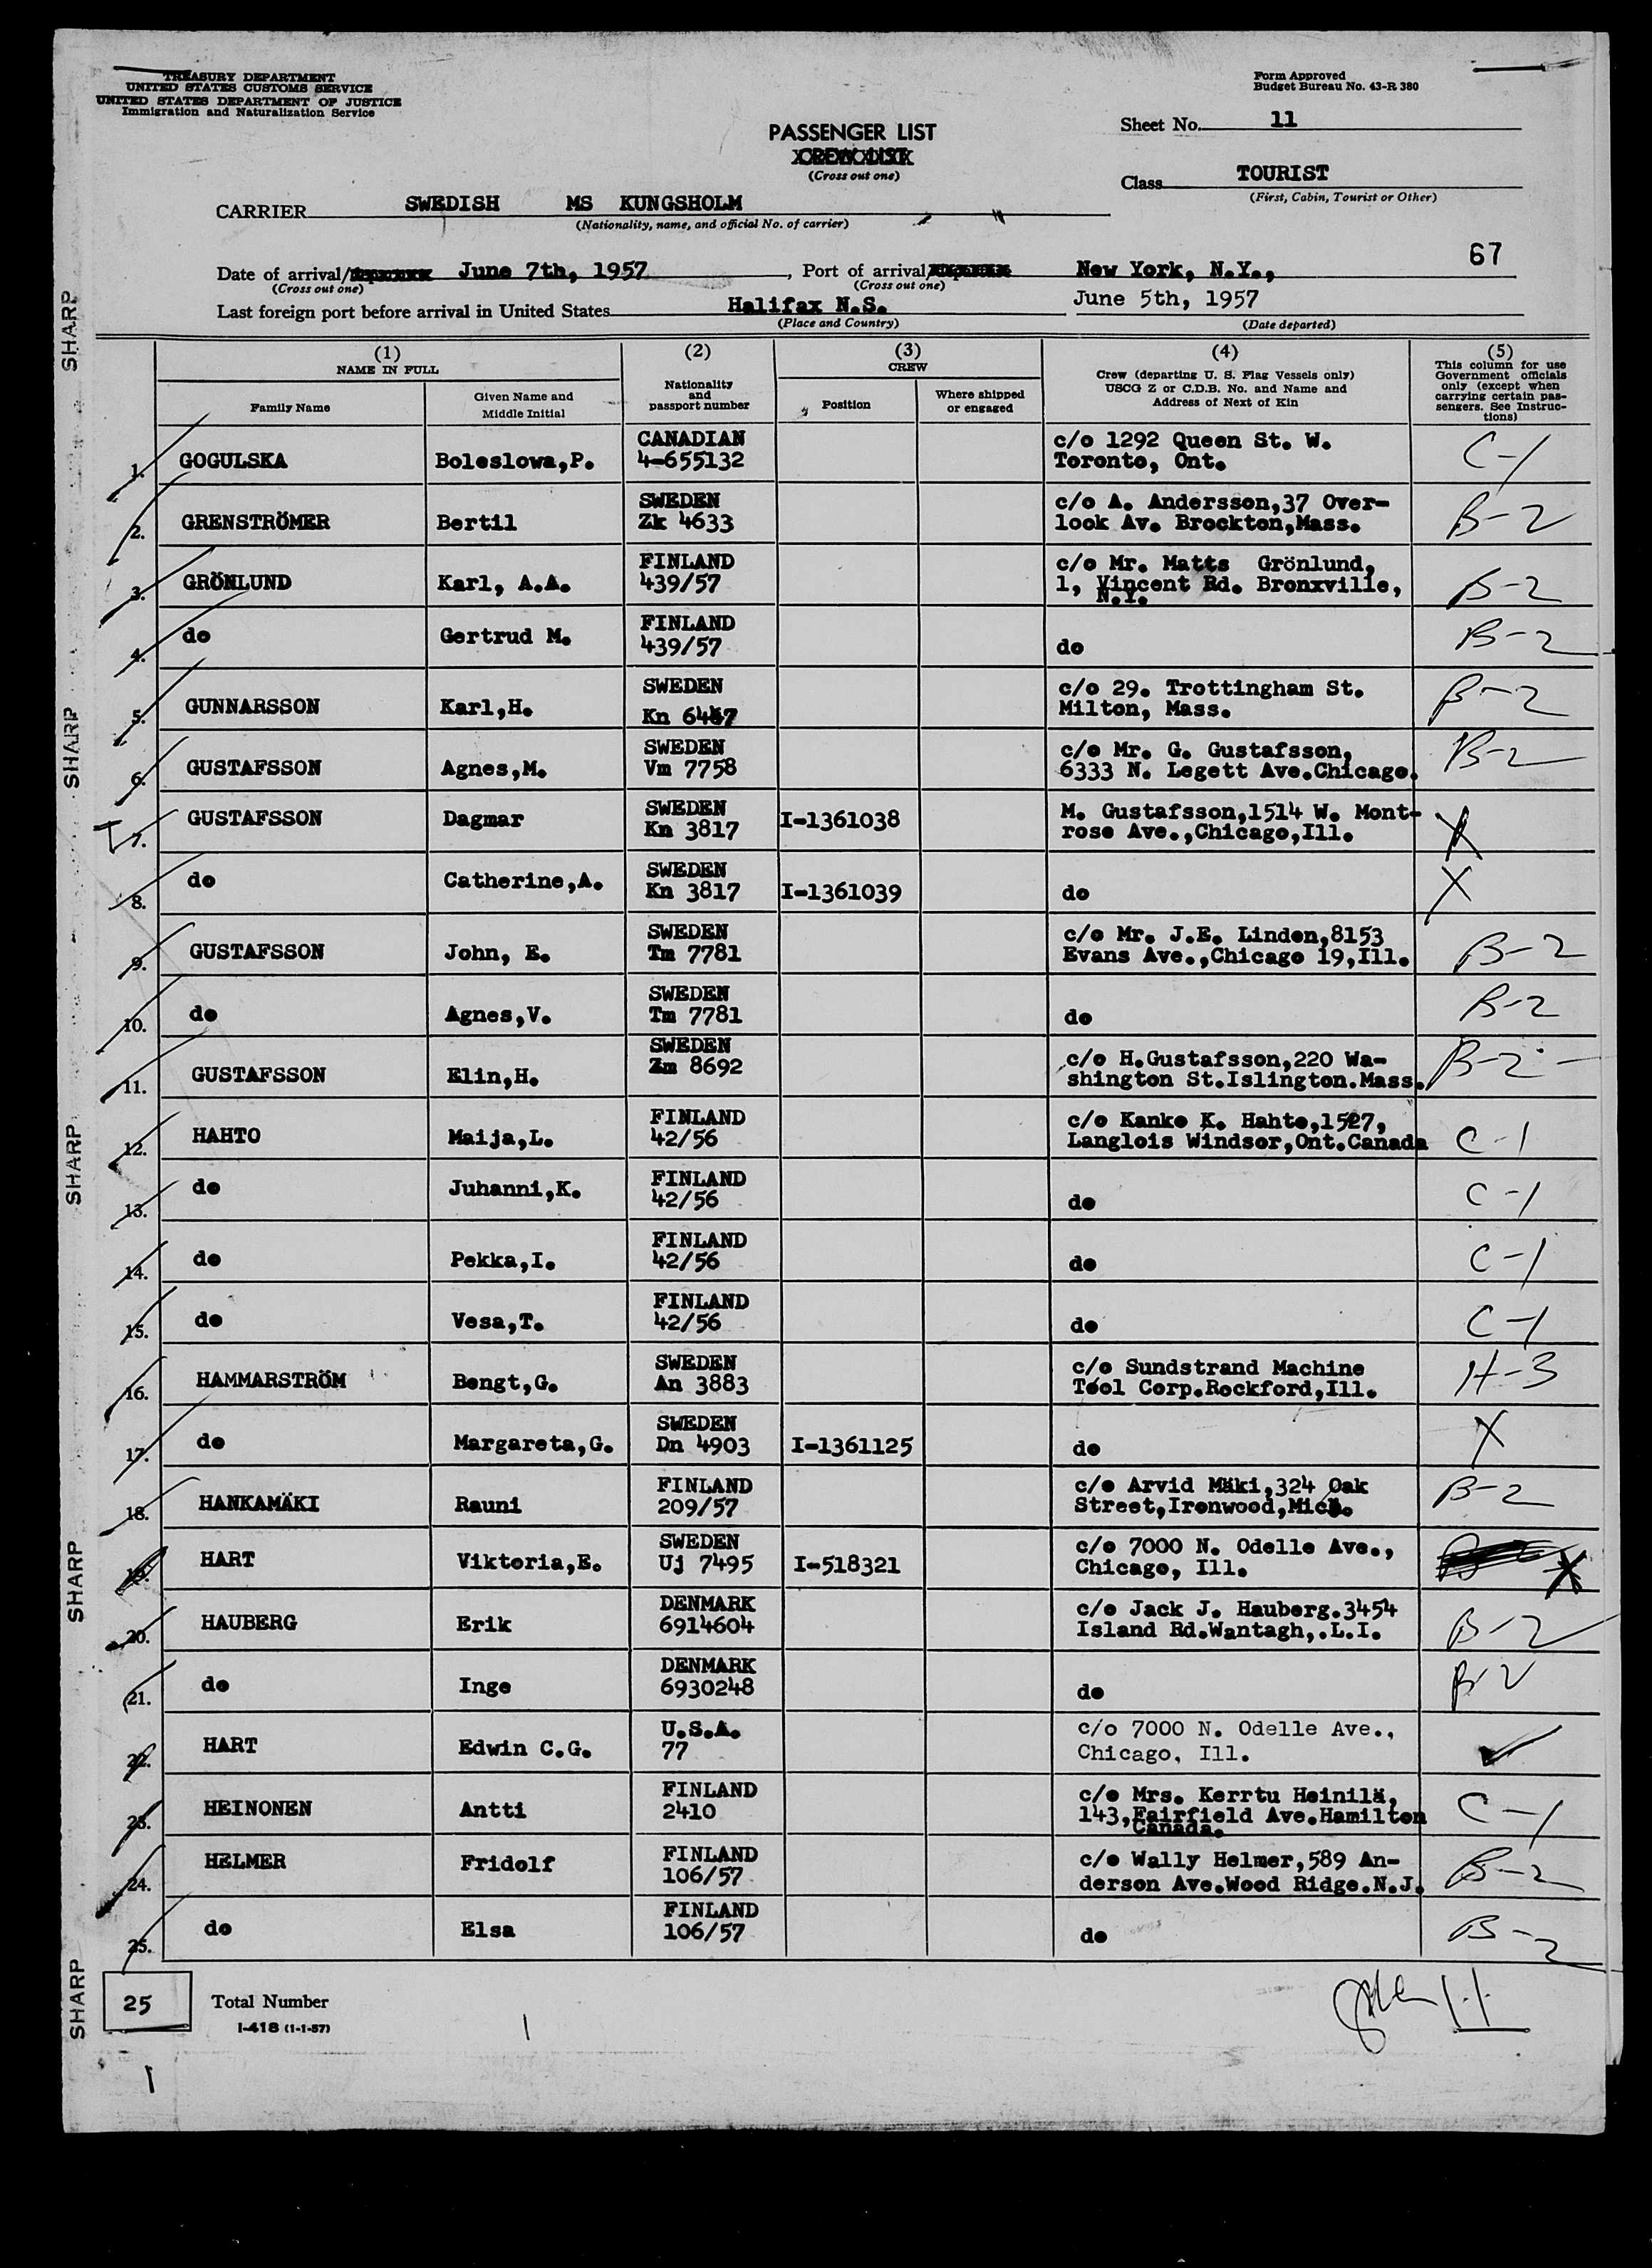 TREASURY DEPARTMENT
UNITED STATES CUSTOMS SERVICE
UNITED STATES DEPARTMENT OF JUSTICE
Immigration and Naturalization Service
Form Approved
Budget Bureau No. 43-R 380
PASSENGER LIST
CREW LIST
(Cross out one)
Sheet No. 11
Class TOURIST
(First, Cabin, Tourist or Other)
CARRIER SWEDISH MS KUNGSHOLM
(Nationality, name, and official No. of carrier)
67
Date of arrival/ June 7th, 1957, Port of arrival/ New York, N.Y.,
(Cross out one) (Cross out one)
Last foreign port before arrival in United States Halifax N.S. June 5th, 1957
(Place and Country) (Date departed)
(1) NAME IN FULL
Family Name
Given Name and Middle Initial
(2) Nationality and passport number
(3) CREW
Position
Where shipped or engaged
(4) Crew (departing U. S. Flag Vessels only)
USCG Z or C.D.B. No. and Name and
Address of Next of Kin
(5) This column for use
Government officials
only (except when
carrying certain pas-
sengers. See Instruc-
tions)
CANADIAN c/o 1292 Queen St. W.
1. GOGULSKA Boleslowa,P. 4-655132 Toronto, Ont. C-1
SWEDEN c/o A. Andersson,37 Over-
2. GRENSTRÖMER Bertil Zk 4633 look Av. Brockton,Mass. B-2
FINLAND c/o Mr. Matts Grönlund,
3. GRÖNLUND Karl, A.A. 439/57 1, Vincent Rd. Bronxville, B-2
N.Y.
FINLAND
4. do Gertrud M. 439/57 do B-2
SWEDEN c/o 29. Trottingham St.
5. GUNNARSSON Karl,H. Kn Milton, Mass. B-2
SWEDEN c/o Mr. G. Gustafsson,
6. GUSTAFSSON Agnes,M. Vm 7758 6333 N. Legett Ave.Chicago. B-2
SWEDEN M. Gustafsson,1514 W. Mont-
7. GUSTAFSSON Dagmar Kn 3817 I-1361038 rose Ave.,Chicago,Ill. X
SWEDEN
8. do Catherine,A. Kn 3817 I-1361039 do X
SWEDEN c/o Mr. J.E. Linden,8153
9. GUSTAFSSON John, E. Tm 7781 Evans Ave.,Chicago 19,Ill. B-2
SWEDEN
10. do Agnes,V. Tm 7781 do B-2
SWEDEN c/o H.Gustafsson,220 Wa-
11. GUSTAFSSON Elin,H. Zm 8692 shington St.Islington.Mass. B-2
FINLAND c/o Kanko K. Hahto,1527,
12. HAHTO Maija,L. 42/56 Langlois Windsor,Ont.Canada C-1
FINLAND
13. do Juhanni,K. 42/56 do C-1
FINLAND
14. do Pekka,I. 42/56 do C-1
FINLAND
15. do Vesa,T. 42/56 do C-1
SWEDEN c/o Sundstrand Machine
16. HAMMARSTRÖM Bengt,G. An 3883 Tool Corp.Rockford,Ill. H-3
SWEDEN
17. do Margareta,G. Dn 4903 I-1361125 do X
FINLAND c/o Arvid Mäki,324 Oak
18. HANKAMÄKI Rauni 209/57 Street,Ironwood,Mich. B-2
SWEDEN c/o 7000 N. Odelle Ave.,
19. HART Viktoria,E. Uj 7495 I-518321 Chicago, Ill. X
DENMARK c/o Jack J. Hauberg.3454
20. HAUBERG Erik 6914604 Island Rd.Wantagh,.L.I. B-2
DENMARK
21. do Inge 6930248 do B-2
U.S.A. c/o 7000 N. Odelle Ave.,
22. HART Edwin C.G. 77 Chicago, Ill.
FINLAND c/o Mrs. Kerrtu Heinilä,
23. HEINONEN Antti 2410 143,Fairfield Ave.Hamilton C-1
Canada.
FINLAND c/o Wally Helmer,589 An-
24. HELMER Fridolf 106/57 derson Ave.Wood Ridge.N.J. B-2
FINLAND
25. do Elsa 106/57 do B-2
25 Total Number
I-418 (1-1-57)
SHARP
SHARP
SHARP
SHARP
SHARP